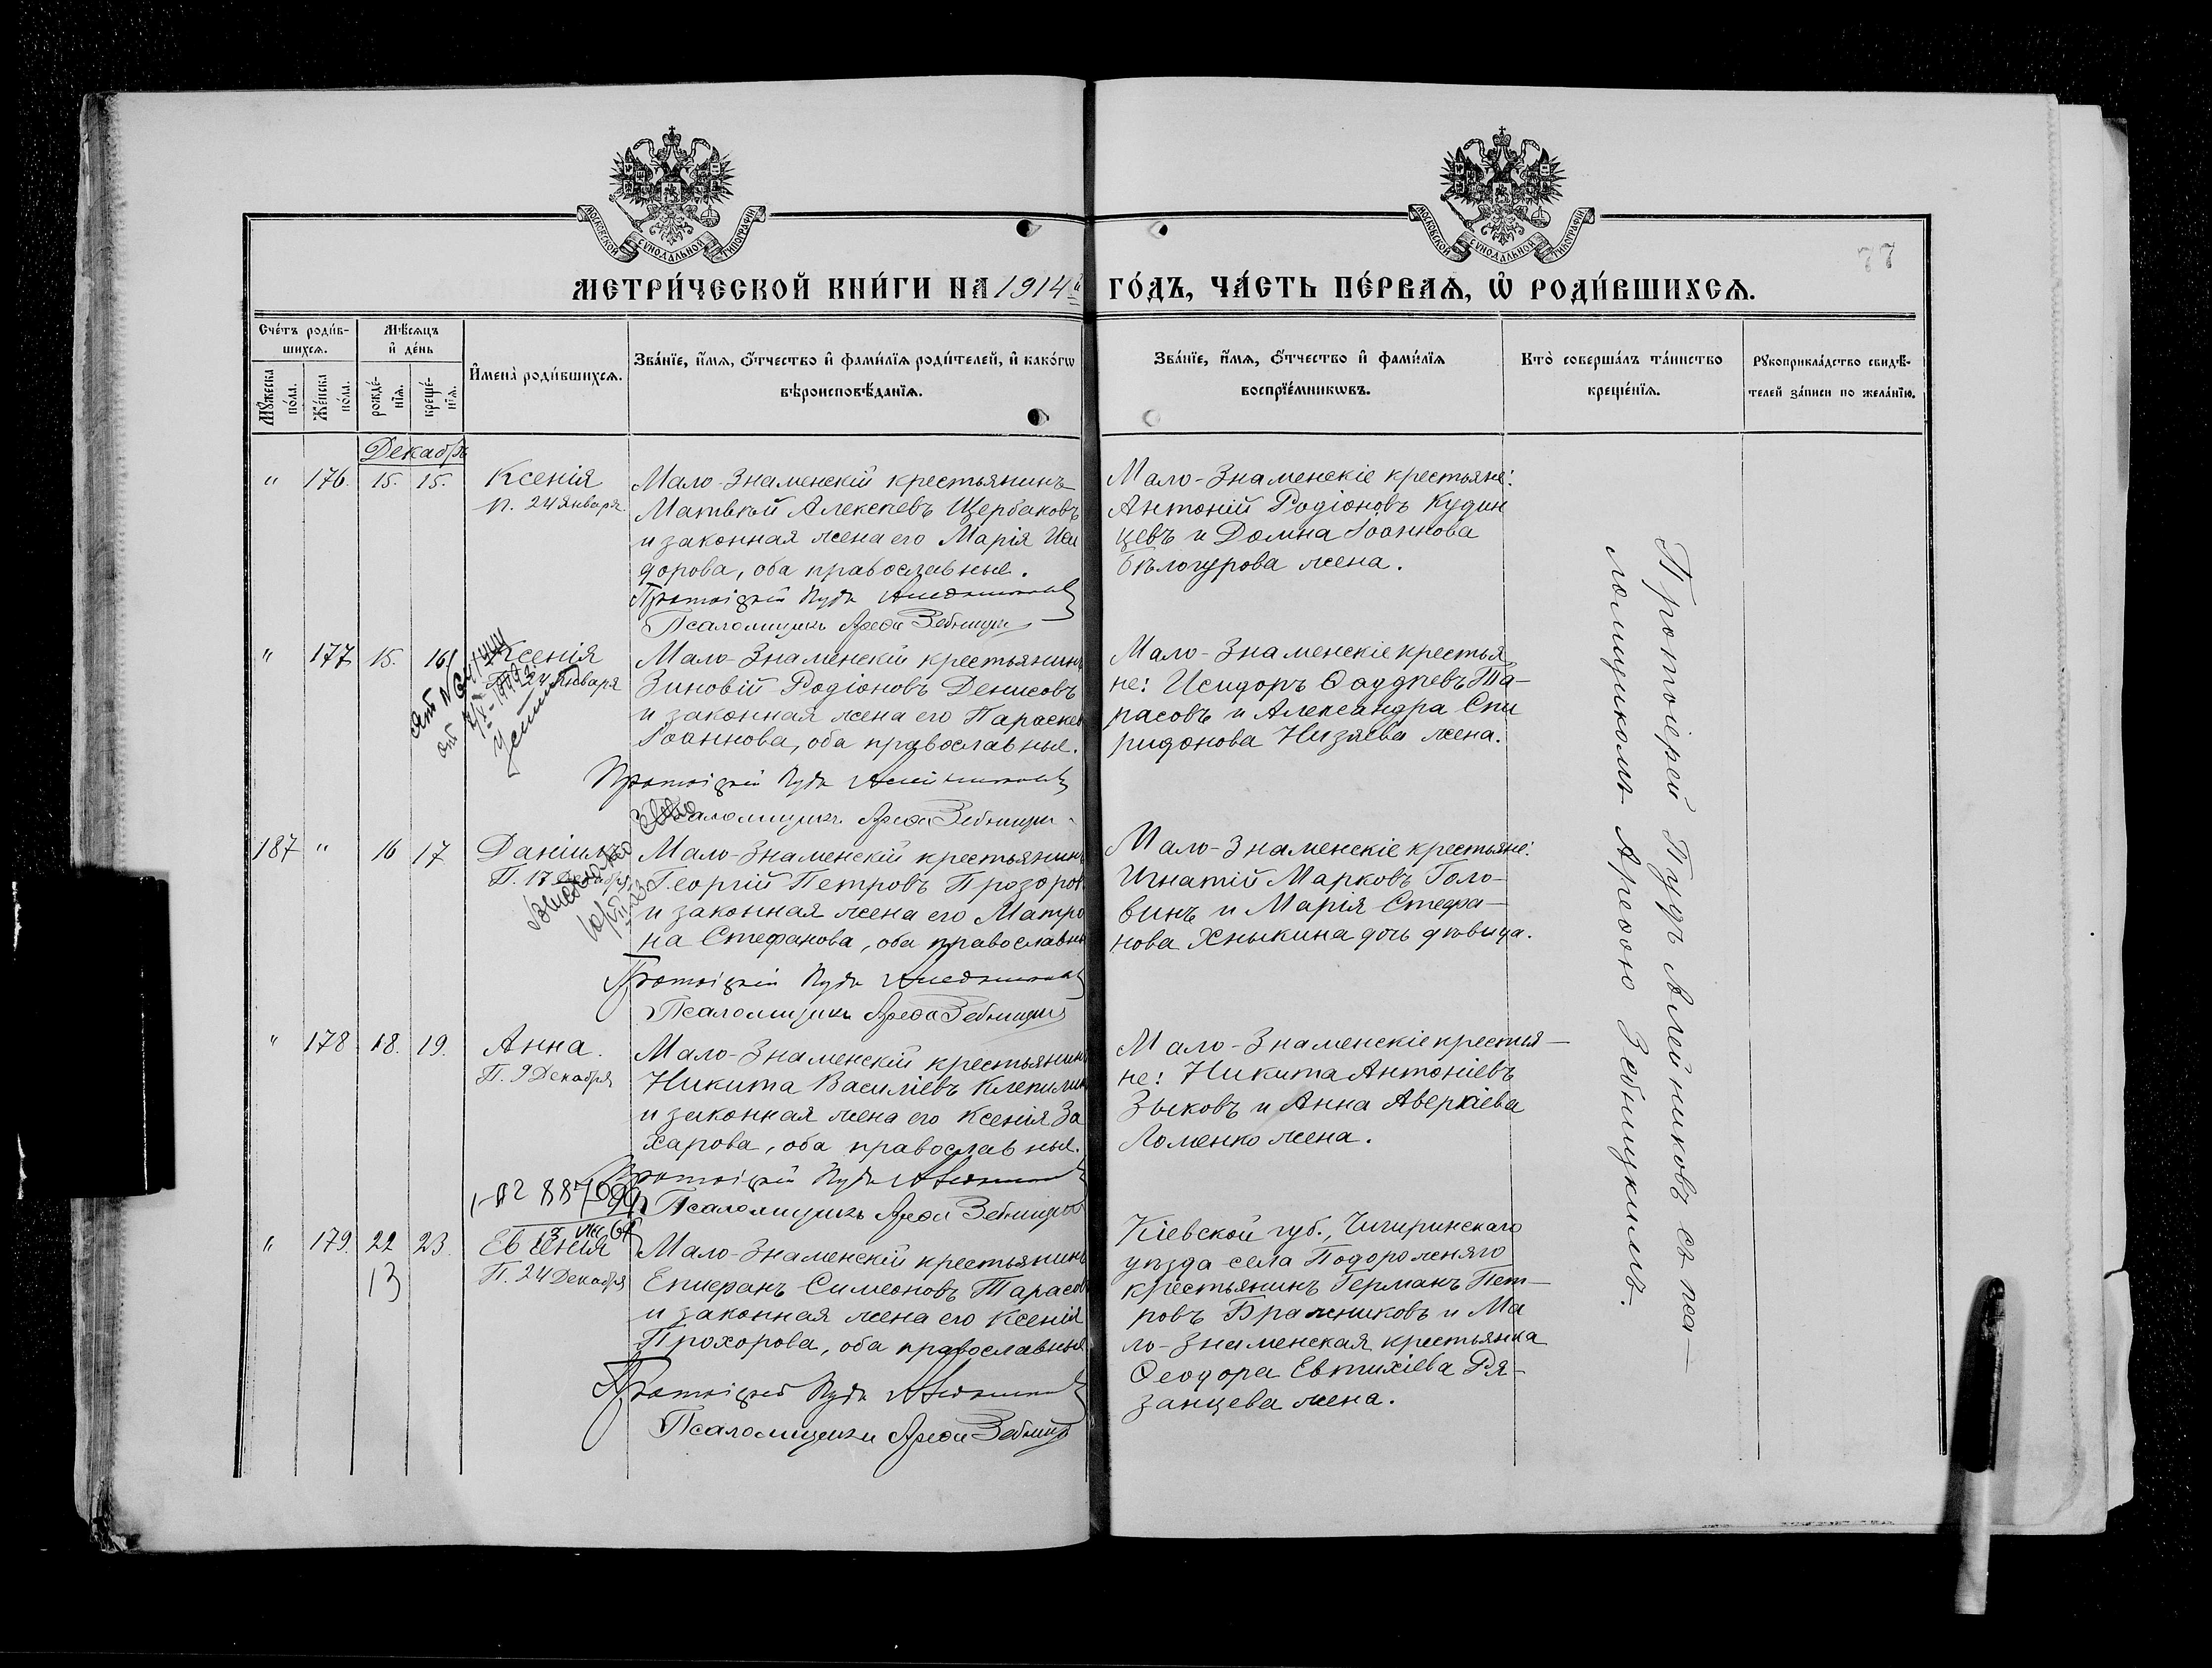 МОСКОВСКОЙ СѴНОДАЛЬНОЙ ТИПОГРАФІИ
МОСКОВСКОЙ СѴНОДАЛЬНОЙ ТИПОГРАФІИ
77
МЕТРИ́ЧЕСКОЙ КНИ́ГИ НА 1914й ГО́ДЪ, ЧА́СТЬ ПЕ́РВАѦ, Ѡ҆ РОДИ́ВШИХСѦ.
Сче́тъ роди́в-
шихсѧ.
Мꙋ́жеска по́ла.
Же́нска по́ла.
Мѣ́сѧцъ и҆ де́нь
рожде́-
нїѧ.
креще́-
нїѧ.
И҆мена̀ роди́вшихсѧ.
Зва́нїе, и҆́мѧ, ѻ҆́тчество и҆ фами́лїѧ роди́телей, и҆ како́гѡ
вѣроисповѣ́данїѧ.
Зва́нїе, и҆́мѧ, ѻ҆́тчество и҆ фами́лїѧ
воспрїе́мникѡвъ.
Кто̀ соверша́лъ та́инство
креще́нїѧ.
Рꙋкоприкла́дство свидѣ́-
телей за́писи по жела́нїю.
Декабрь
" 176. 15. 15. Ксенія
П. 24 Января
Мало-Знаменскій крестьянинъ
Матвѣй Алексѣевъ Щербаковъ
и законная жена его Марія Иси
дорова, оба православные.
Протоіерей Пудъ Алейниковъ
Псаломщикъ Арефа Зебницкій
Мало-Знаменскіе крестьяне:
Антоній Родіоновъ Кудин
цевъ и Домна Іоаннова
Бѣлогурова жена.
" 177 15. 16 Ксенія
П. 24 Января
Мало-Знаменскій крестьянинъ
Зиновій Родіоновъ Денисовъ
и законная жена его Параскев
Іоаннова, оба православные.
Протоіерей Пудъ Алейниковъ
Псаломщикъ Арефа Зебницкій
Мало-Знаменскіе крестья
не: Исидоръ Ѳаддѣевъ Та-
расовъ и Александра Спи
ридонова Низяева жена.
187 " 16 17 Даніилъ
П. 17 Декабря
Мало-Знаменскій крестьянинъ
Георгій Петровъ Прозоров
и законная жена его Матро
на Стефанова, оба православны
Протоіерей Пудъ Алейниковъ
Псаломщикъ Арефа Зебницкій
Мало-Знаменскіе крестьяне:
Игнатій Марковъ Голо-
винъ и Марія Стефа-
нова Хныкина дочь дѣвица.
" 178 18. 19. Анна.
П. 9 Декабря
Мало-Знаменскій крестьянин
Никита Василіевъ Клепили
и законная жена его Ксенія За
харова, оба православные.
Протоіерей Пудъ Алейниковъ
Псаломщикъ Арефа Зебницкій
Мало-Знаменскіе крестья-
не: Никита Антоніевъ
Зыковъ и Анна Аверкіева
Ломенко жена.
" 179. 22 23. Евгенія
13
П. 24 Декабря
Мало-Знаменскій крестьянинъ
Епифанъ Симеоновъ Тарасов
и законная жена его Ксенія
Прохорова, оба православные
Протоіерей Пудъ Алейниковъ
Псаломщикъ Арефа Зебницкій
Кіевской губ., Чигиринскаго
уѣзда села Подорожняго
крестьянинъ Германъ Пет-
ровъ Бражниковъ и Ма
ло-Знаменская крестьянка
Ѳеодора Евтихіева Ря-
занцева жена.
Протоіерей Пудъ Алейниковъ съ пса-
ломщикомъ Арефою Зебницкимъ.